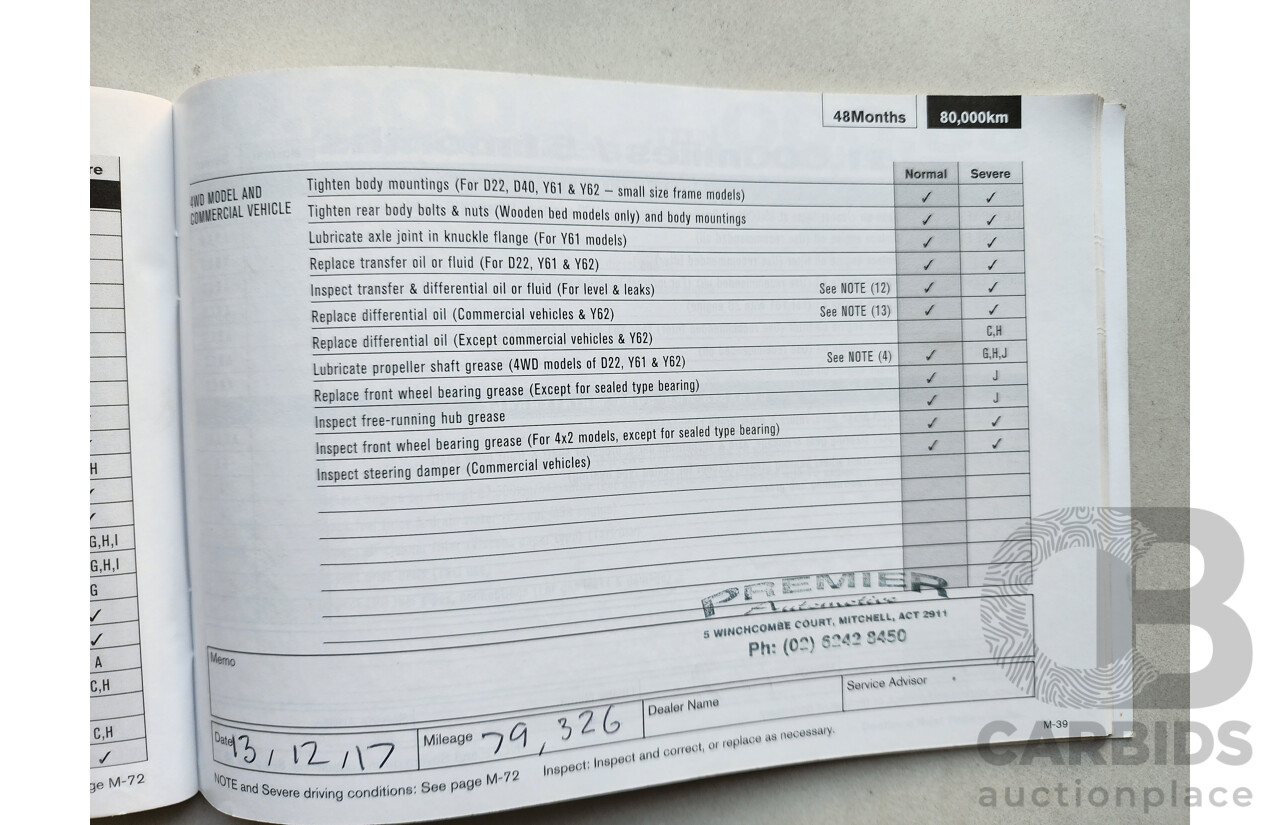 48Months 80,000km
Normal Severe
4WD MODEL AND
COMMERCIAL VEHICLE
Tighten body mountings (For D22, D40, Y61 & Y62 – small size frame models) ✓ ✓
Tighten rear body bolts & nuts (Wooden bed models only) and body mountings ✓ ✓
Lubricate axle joint in knuckle flange (For Y61 models) ✓ ✓
Replace transfer oil or fluid (For D22, Y61 & Y62) ✓ ✓
Inspect transfer & differential oil or fluid (For level & leaks) See NOTE (12) ✓ ✓
Replace differential oil (Commercial vehicles & Y62) See NOTE (13) ✓ ✓
Replace differential oil (Except commercial vehicles & Y62) C,H
Lubricate propeller shaft grease (4WD models of D22, Y61 & Y62) See NOTE (4) ✓ G,H,J
Replace front wheel bearing grease (Except for sealed type bearing) ✓ J
Inspect free-running hub grease ✓ J
Inspect front wheel bearing grease (For 4x2 models, except for sealed type bearing) ✓ ✓
Inspect steering damper (Commercial vehicles) ✓ ✓
PREMIER
Automotive
5 WINCHCOMBE COURT, MITCHELL, ACT 2911
Ph: (02) 6242 8450
Memo
Date 13/12/17 Mileage 79,326 Dealer Name Service Advisor
NOTE and Severe driving conditions: See page M-72 Inspect: Inspect and correct, or replace as necessary.
M-39
re
H
✓
✓
G,H,I
G,H,I
G
✓
✓
A
C,H
C,H
✓
ge M-72
CB
CARBIDS
auctionplace